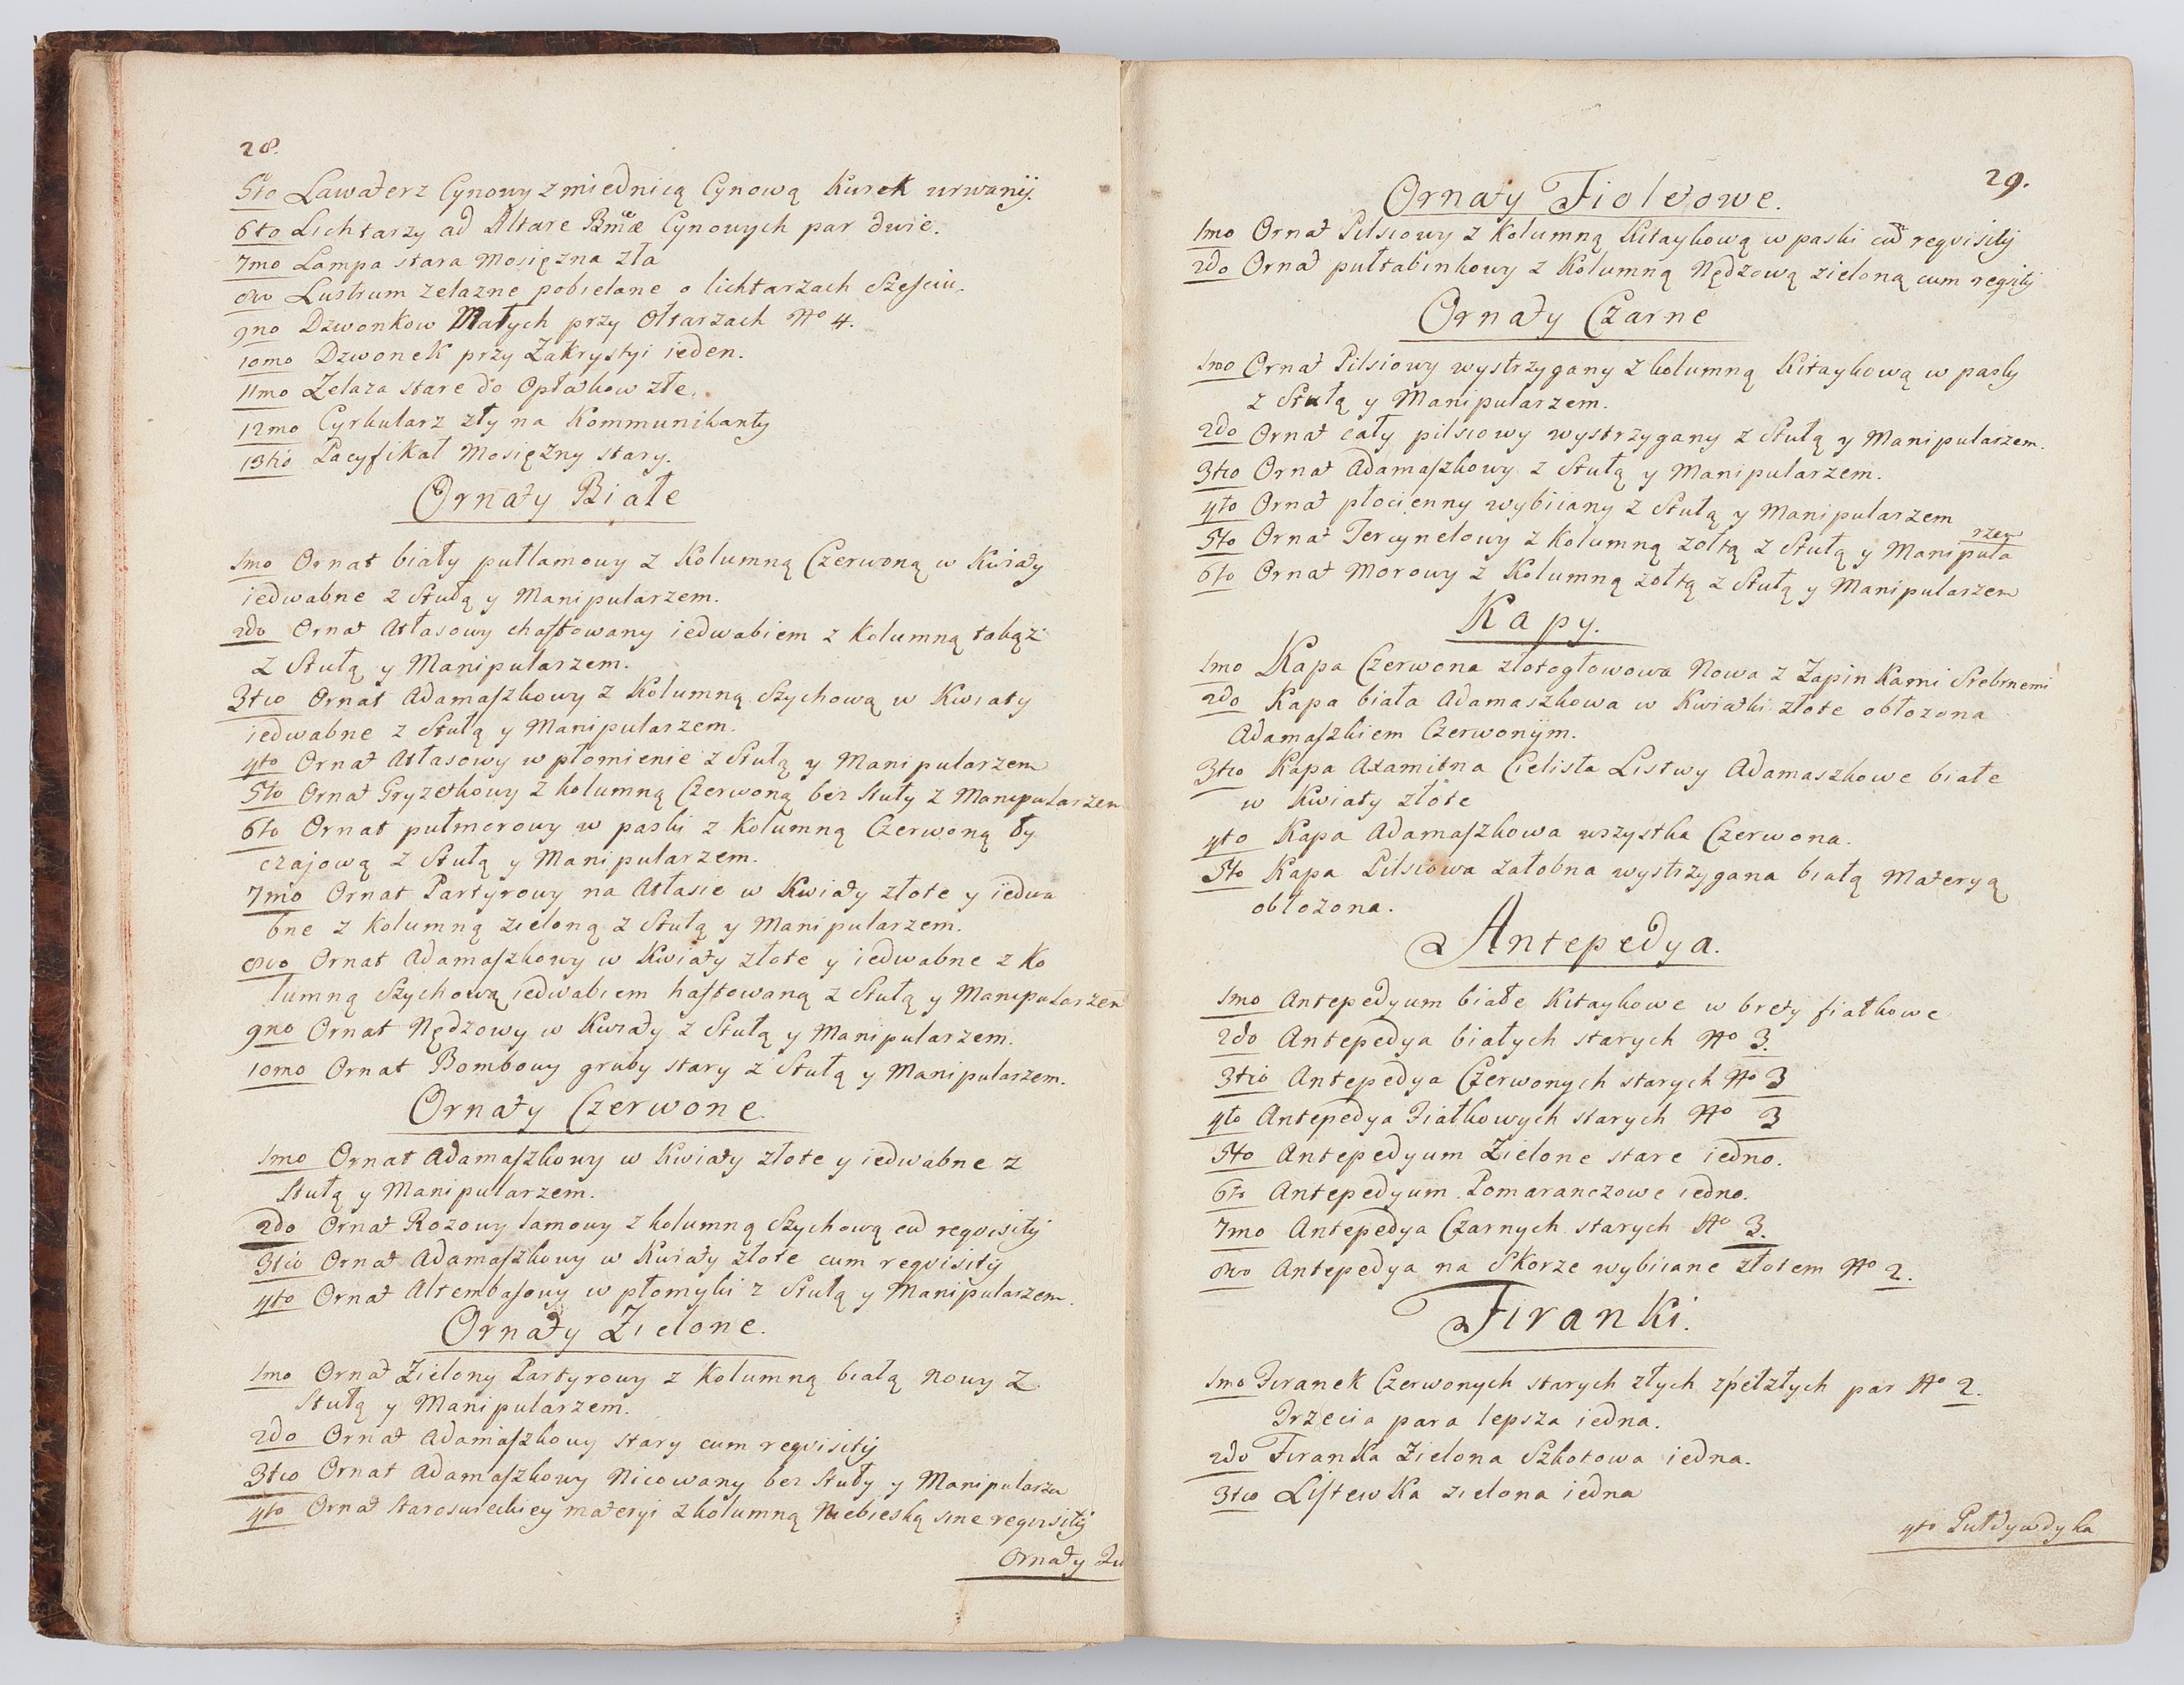 28.
5to Lawaterz Cynowy z miednicą Cynową Kurek urwanÿ.
6to Lichtarzy ad Altare Bmæ Cynowych par dwie.
7mo Lampa stara Mosiężna zła
8vo Lustrum zelazne pobielane o lichtarzach Sześciu.
9no Dzwonkow Małych przy Ołtarzach No 4.
10mo Dzwonek przy Zakrystyi ieden.
11mo Żelaza stare do Opłatkow złe.
12mo Cyrkularz zły na Kommunikanty
13tio Pacyfikał Mosiężny stary.
Ornaty Białe
1mo Ornat biały pułlamowy z Kolumną Czerwoną w Kwiaty
iedwabne z Stułą y Manipularzem.
2do Ornat Atłasowy chaftowany iedwabiem z Kolumną takąż
z Stułą y Manipularzem.
3tio Ornat Adamaszkowy z Kolumną Szychową w Kwiaty
iedwabne z Stułą y Manipularzem.
4to Ornat Atłasowy w płomienie z Stułą y Manipularzem
5to Ornat Gryzetkowy z kolumną Czerwoną bez Stuły z Manipularzem
6to Ornat pułmorowy w paski z Kolumną Czerwoną
czajową z Stułą y Manipularzem.
7mo Ornat Partyrowy na Atłasie w Kwiaty złote y iedwa
bne z Kolumną zieloną z Stułą y Manipularzem.
8vo Ornat Adamaszkowy w Kwiaty złote y iedwabne z Ko
lumną Szychową iedwabiem haftowaną z Stułą y Manipularzem
9no Ornat Nędzowy w Kwiaty z Stułą y Manipularzem.
10mo Ornat Bombowy gruby stary z Stułą y Manipularzem.
Ornaty Czerwone.
1mo Ornat Adamaszkowy w Kwiaty złote y iedwabne z
Stułą y Manipularzem.
2do Ornat Rozowy lamowy z kolumną Szychową cū reqvisitÿ
3tio Ornat Adamaszkowy w Kwiaty złote cum reqvisitÿ
4to Ornat Altembasowy w płomyki z Stułą y Manipularzem.
Ornaty Zielone.
1mo Ornat Zielony Partyrowy z Kolumną białą Nowy z
Stułą y Manipularzem.
2do Ornat Adamaszkowy stary cum reqvisitÿ
3tio Ornat Adamaszkowy Nicowany bez Stuły y Manipularza
4to Ornat staroswieckiey materyi z kolumną Niebieską sine reqvisitÿ
Ornaty
29.
Ornaty Fioletowe.
1mo Ornat Pilsiowy z Kolumną Kitaykową w paski cū reqvisitÿ
2do Ornat pułtabinkowy z Kolumną Nędzową zieloną cum reqvitÿ
Ornaty Czarne
1mo Ornat Pilsiowy wystrzygany z kolumną Kitaykową w pasky
z Stułą y Manipularzem.
2do Ornat cały pilsiowy wystrzygany z Stułą y Manipularzem.
3tio Ornat Adamaszkowy z Stułą y Manipularzem.
4to Ornat płocienny wybiiany z Stułą y Manipularzem
5to Ornat Tercynelowy z Kolumną zołtą z Stułą y Manipula
rzem
6to Ornat Morowy z Kolumną zołtą z Stułą y Manipularzem
Kapy.
1mo Kapa Czerwona złotogłowowa Nowa z Zapinkami Srebrnemi
2do Kapa biała Adamaszkowa w Kwiatki złote obłozona
Adamaszkiem Czerwonÿm.
3tio Kapa Axamitna Cielista Listwy Adamaszkowe białe
w Kwiaty złote
4to Kapa Adamaszkowa wszystka Czerwona.
5to Kapa Pilsiowa załobna wystrzygana białą Materyą
obłozona.
Antepedya.
1mo Antepedyum białe Kitaykowe w brety fiałkowe
2do Antepedya białych starych No 3.
3tio Antepedya Czerwonych starych No 3
4to Antepedya Fiałkowych starych No 3
5to Antepedyum Zielone stare iedno.
6to Antepedyum Pomaranczowe iedno.
7mo Antepedya Czarnych starych No 3.
8vo Antepedya na Skorze wybiiane złotem No 2.
Firanki.
1mo Firanek Czerwonych starych złych zpełzłych par No 2.
Trzecia para lepsza iedna.
2do Firanka Zielona Szkotowa iedna.
3tio Listewka zielona iedna
4to Pułdywdyka